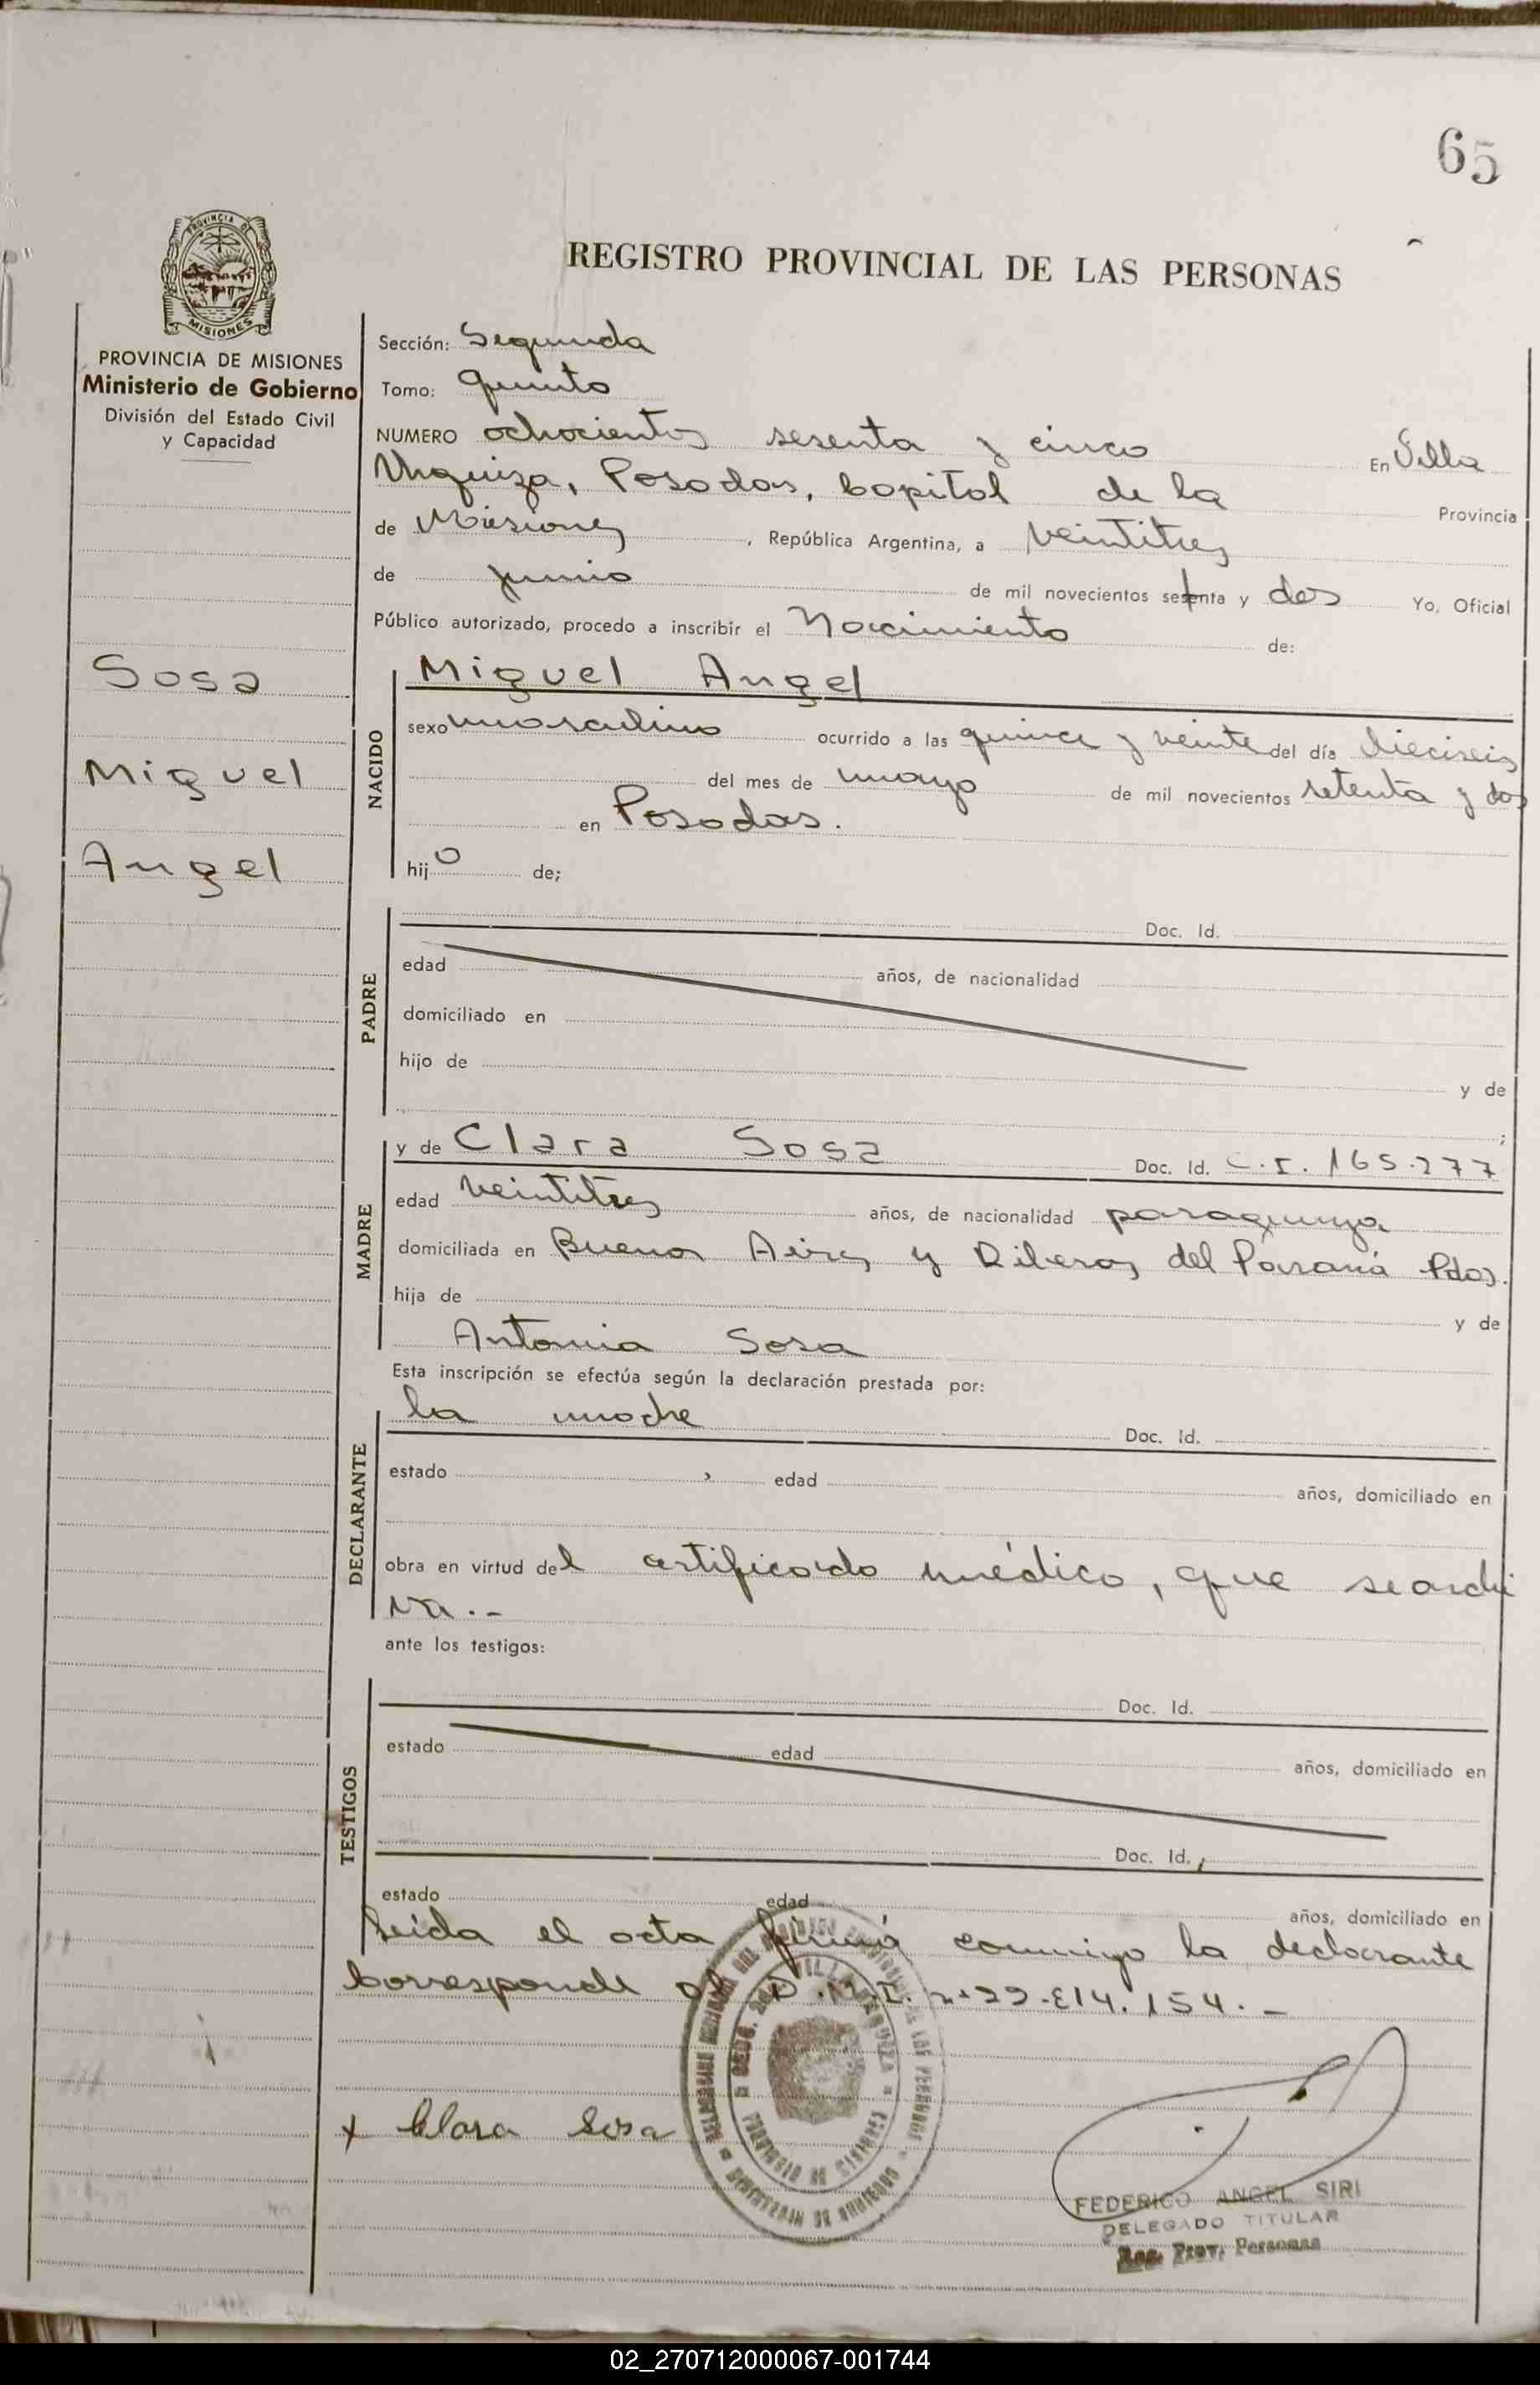 65
REGISTRO PROVINCIAL DE LAS PERSONAS
PROVINCIA DE
MISIONES
PROVINCIA DE MISIONES
Ministerio de Gobierno
División del Estado Civil
y Capacidad
Sosa
Miguel
Angel
Sección: Segunda
Tomo: Quinto
NUMERO ochocientos sesenta y cinco En Villa
Urquiza, Posadas, Capital de la Provincia
de Misiones, República Argentina, a veintitres
de junio de mil novecientos setenta y dos Yo, Oficial
Público autorizado, procedo a inscribir el Nacimiento de:
NACIDO
Miguel Angel
sexo masculino ocurrido a las quince y veinte del día dieciseis
del mes de mayo de mil novecientos setenta y dos
en Posadas.
hijo de;
PADRE
Doc. Id.
edad años, de nacionalidad
domiciliado en
hijo de y de
;
MADRE
y de Clara Sosa Doc. Id. C.I. 165.277
edad veintitres años, de nacionalidad paraguaya
domiciliada en Buenos Aires y Riberas del Paraná Pdas.
hija de y de
Antonia Sosa
Esta inscripción se efectúa según la declaración prestada por:
DECLARANTE
la madre Doc. Id.
estado , edad años, domiciliado en
obra en virtud del certificado médico, que se archi
va.-
ante los testigos:
TESTIGOS
Doc. Id.
estado edad años, domiciliado en
Doc. Id.
estado edad años, domiciliado en
Leida el acta firma conmigo la declarante
Corresponde al D.N.I. nº 22.814.154.-
x Clara Sosa
FEDERICO ANGEL SIRI
DELEGADO TITULAR
Reg. Prov. Personas
02_270712000067-001744